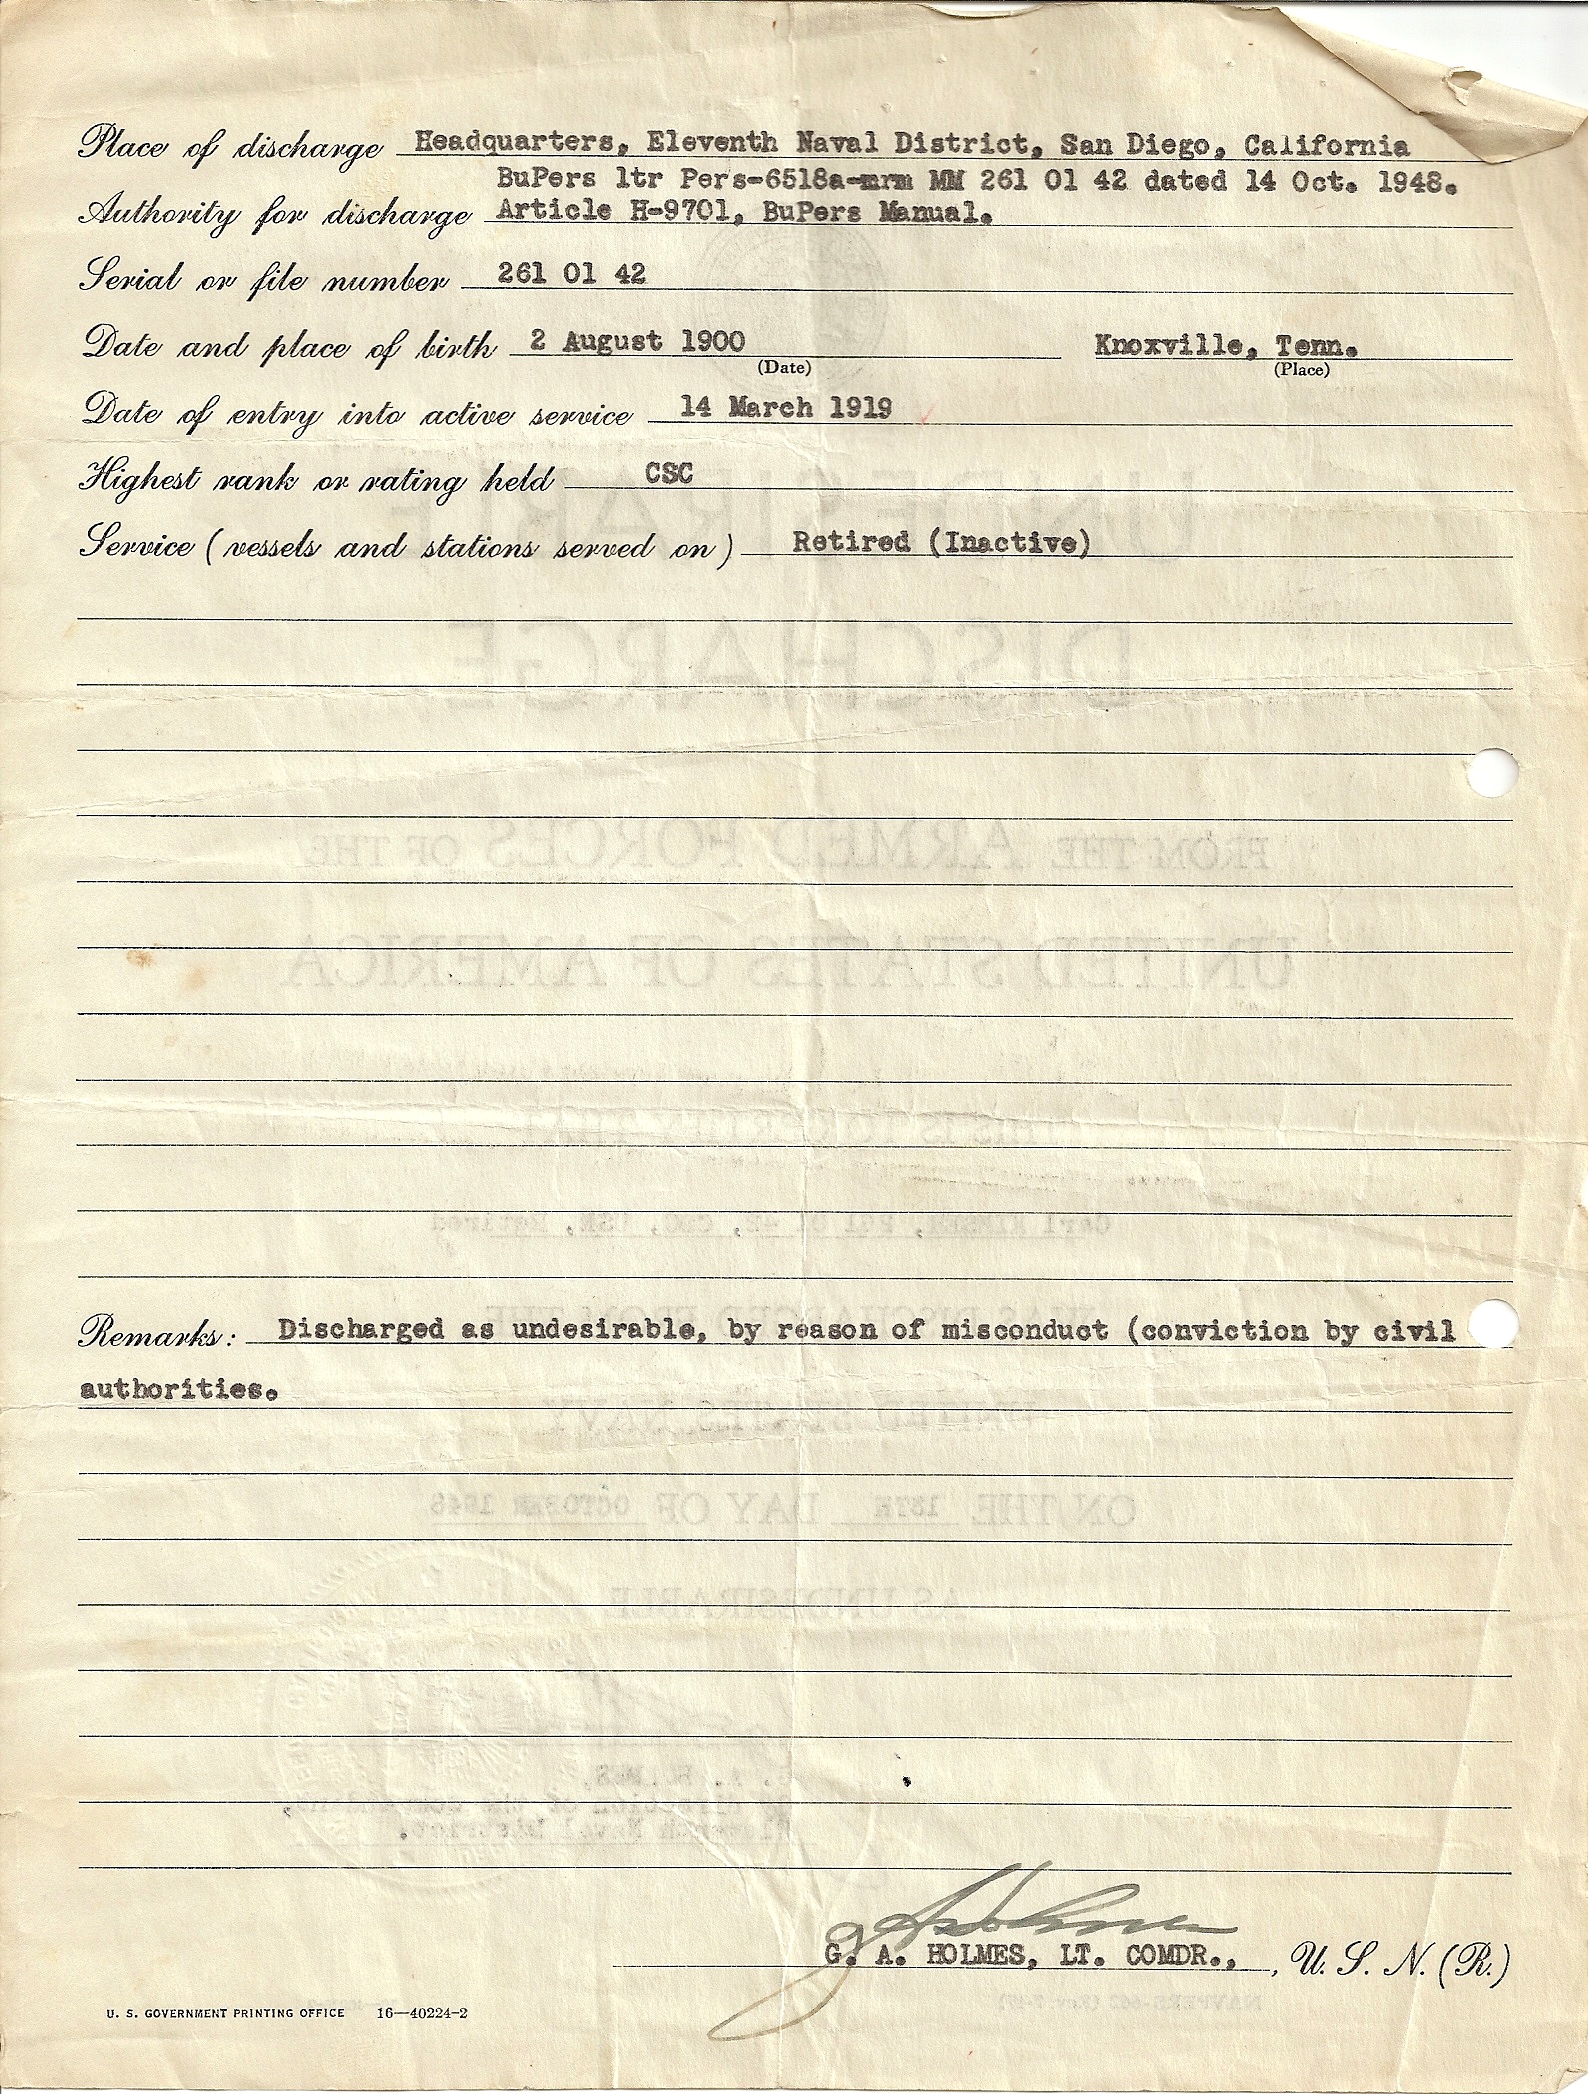 Place of discharge Headquarters, Eleventh Naval District, San Diego, California
BuPers ltr Pers-6518a-mrm MM 261 01 42 dated 14 Oct. 1948.
Authority for discharge Article H-9701, BuPers Manual.
Serial or file number 261 01 42
Date and place of birth 2 August 1900 Knoxville, Tenn.
(Date) (Place)
Date of entry into active service 14 March 1919
Highest rank or rating held CSC
Service (vessels and stations served on) Retired (Inactive)
DISCHARGE
FROM THE ARMED FORCES OF THE
UNITED STATES OF AMERICA
Remarks: Discharged as undesirable, by reason of misconduct (conviction by civil
authorities.
UNITED STATES NAVY
ON THE 18TH DAY OF OCTOBER 1948
AS UNDESIRABLE
G. A. HOLMES, LT. COMDR., , U. S. N. (R.)
U. S. GOVERNMENT PRINTING OFFICE 16—40224-2